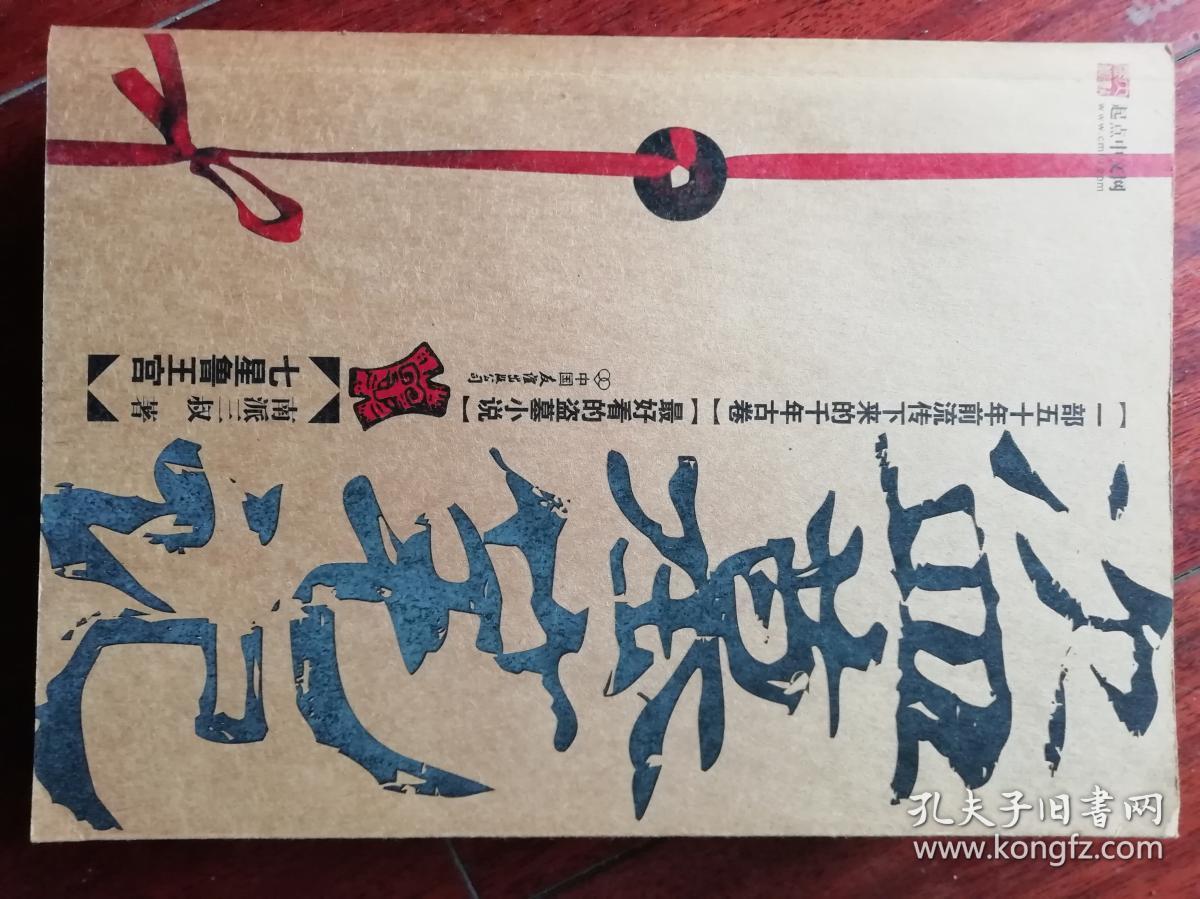 盗墓笔记
【一部五十年前流传下来的千年古卷】
【最好看的盗墓小说】
中国友谊出版公司
七星鲁王宫
南派三叔 著
起点中文网
孔夫子旧书网
www.kongfz.com